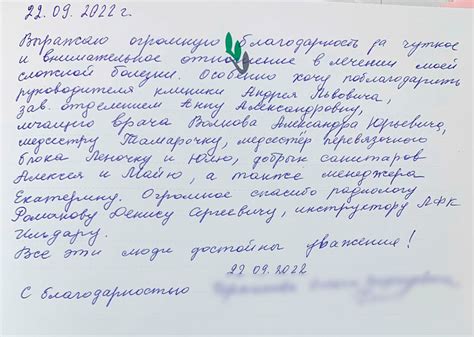 22.09.2022 г.
Выражаю огромную благодарность за чуткое
и внимательное отношение в лечении моей
сложной болезни. Особенно хочу поблагодарить
руководителя клиники Андрея Львовича,
зав. отделением Анну Александровну,
лечащего врача Волкова Александра Юрьевича,
медсестру Тамарочку, медсестёр перевязочного
блока Леночку и Юлю, добрых санитаров
Алексея и Майю, а также менеджера
Екатерину. Огромное спасибо радиологу
Романову Денису Сергеевичу, инструктору ЛФК
Ильдару.
Все эти люди достойны уважения!
22.09.2022
С благодарностью